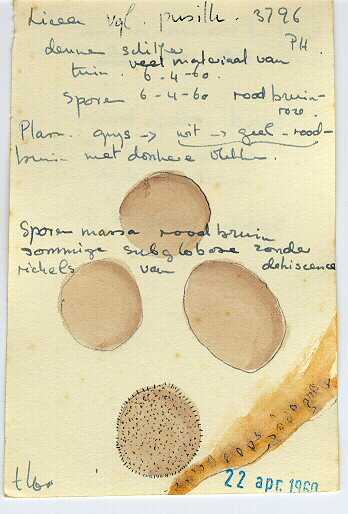 Licea vgl. pusilla. 3796
dennen schilfer PH.
tuin. veel materiaal van
6-4-60.
Sporen 6-4-60 roodbruin-
roze.
Plasm. grys -> wit -> geel - rood-
bruin met donkere vlekken.
Sporen massa roodbruin
sommige subglobose zonder
richels van dehiscence
22 apr. 1960